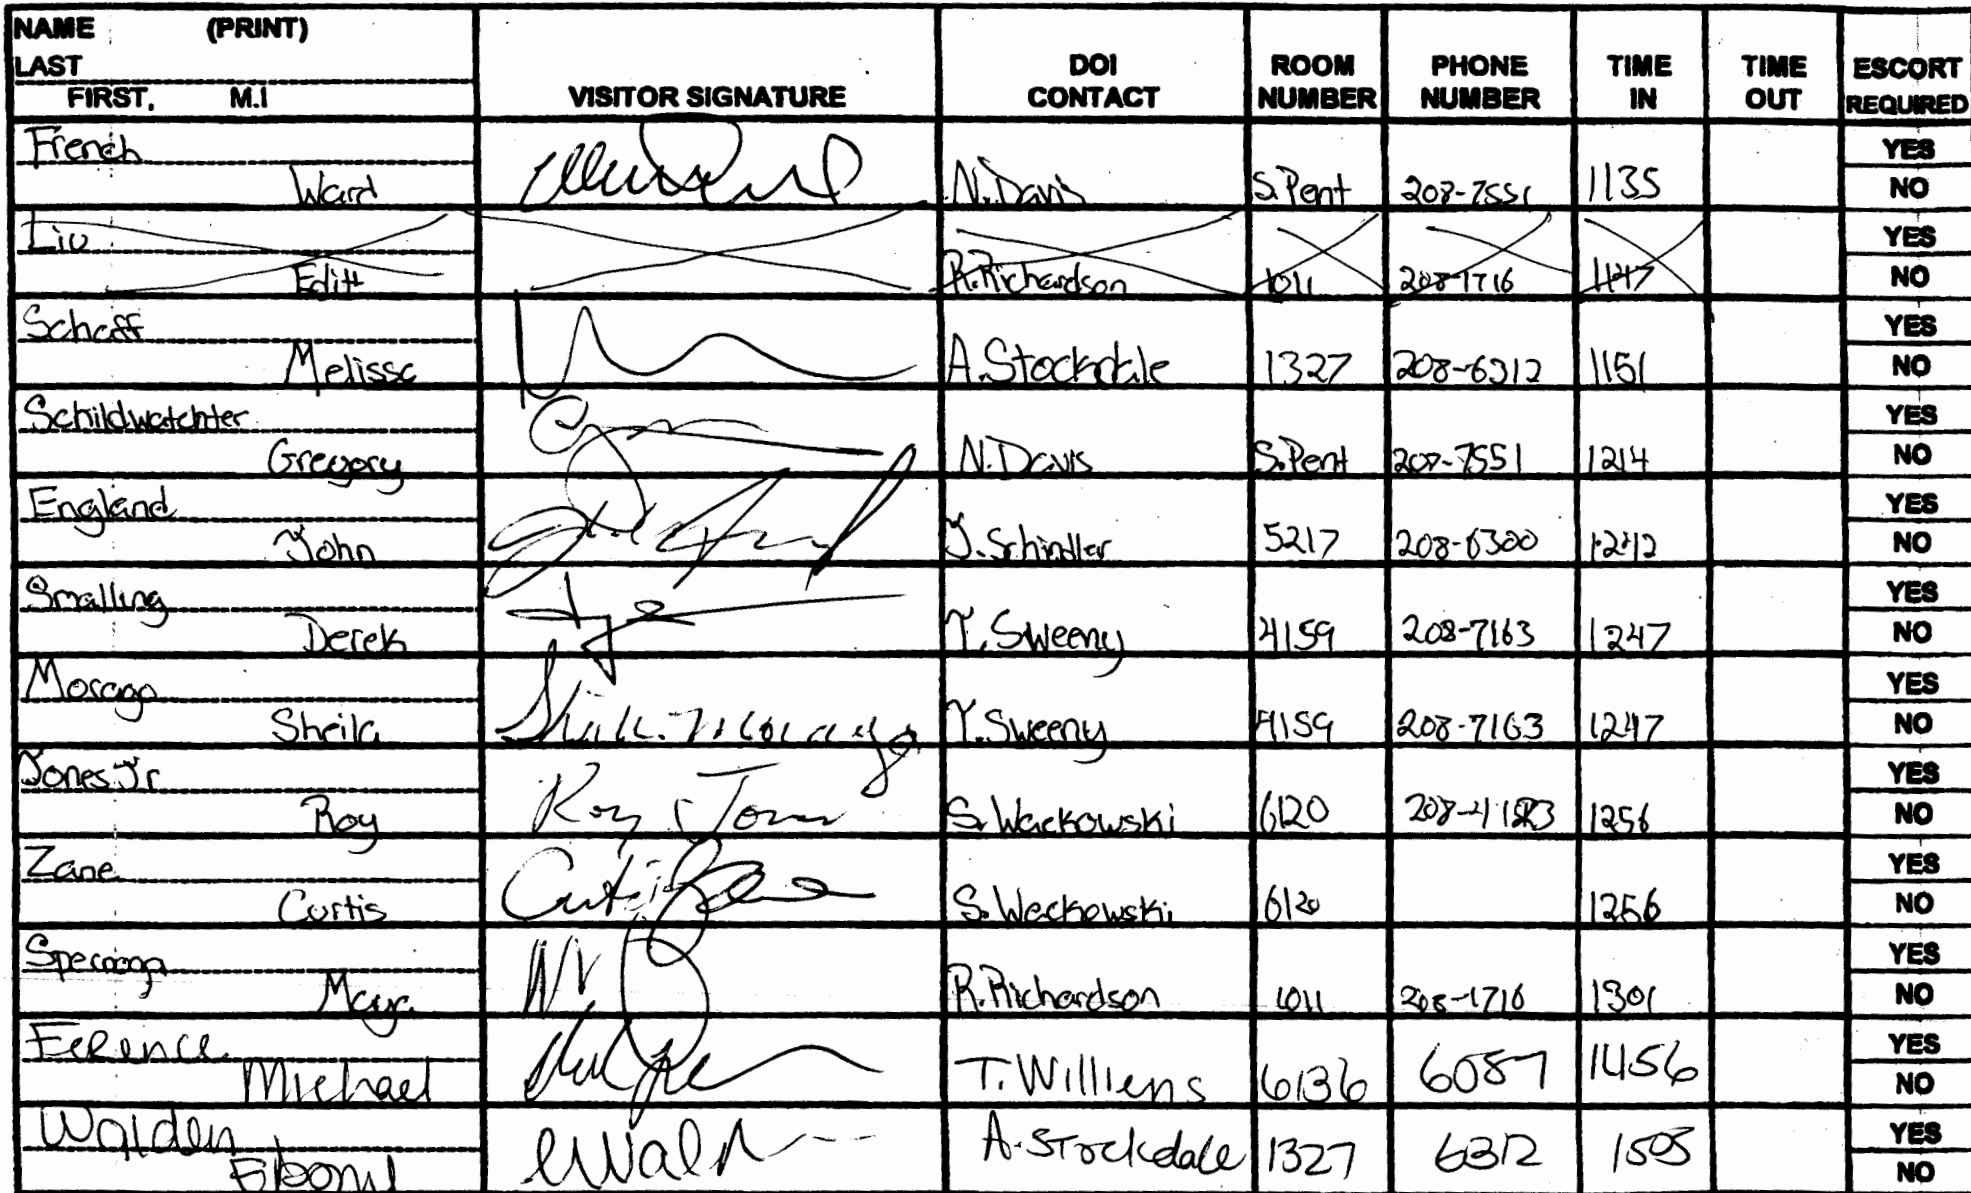 NAME (PRINT)
LAST
FIRST, M.I
VISITOR SIGNATURE
DOI CONTACT
ROOM NUMBER
PHONE NUMBER
TIME IN
TIME OUT
ESCORT REQUIRED
French YES
Ward N. Davis S. Pent 208-7551 1135 NO
Liu YES
Edith R. Richardson 1011 208-1716 1147 NO
Schaff YES
Melissa A. Stockdale 1327 208-6312 1151 NO
Schildwatchter YES
Gregory N. Davis S. Pent 208-7551 1214 NO
England YES
John J. Schindler 5217 208-6300 1242 NO
Smalling YES
Derek T. Sweeny 4159 208-7163 1247 NO
Morago YES
Sheila T. Sweeny 4159 208-7163 1247 NO
Jones Jr YES
Roy Roy Jones S. Wackowski 6120 1256 NO
Zane YES
Curtis S. Wackowski 6120 1256 NO
YES
Maya R. Richardson 1011 208-1716 1301 NO
Ference YES
Michael T. Williams 6136 6087 1456 NO
Walden YES
Ebony A. Stockdale 1327 6312 1505 NO